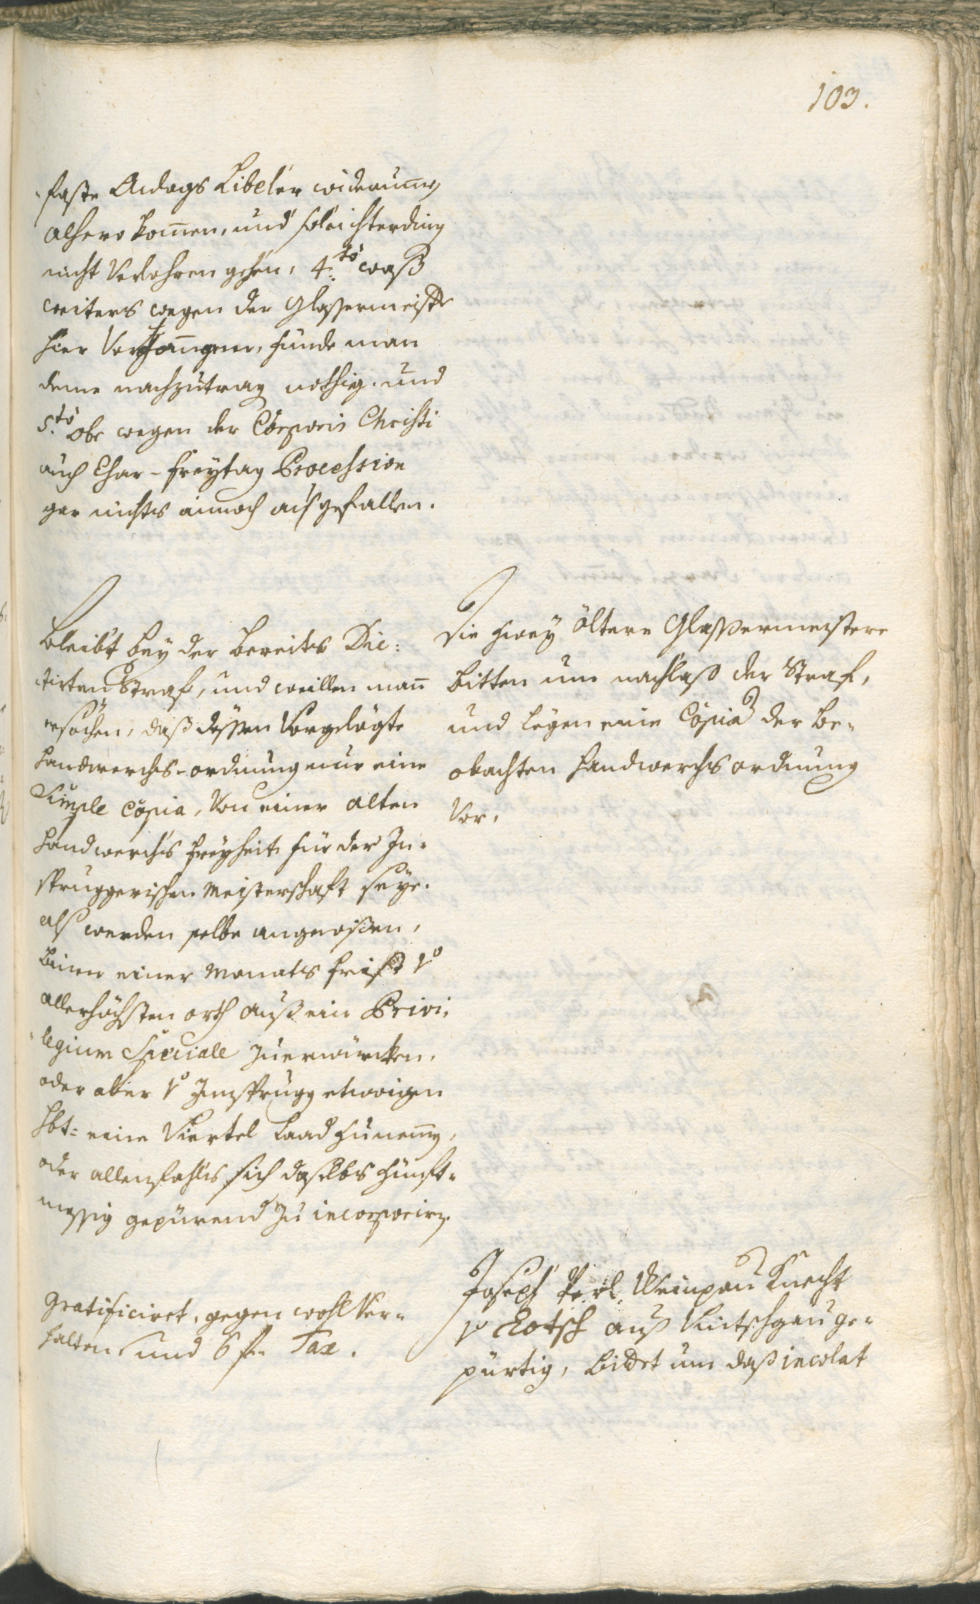 103.
faste Aidags Libel'en widerumm
alhero komen, und schleichterding
nicht Verlohren gehen, 4.to waß
weiters wegen der Glaßermeister
hier Vorkomen, finde man
deme nachzutrag nothig. und
5.to obr wegen der Corporis Christi
auch Char-Freytag Procession
gar nichts annoch ausgefallen.
Bleibt bey der bereits Dic:
tirten Straf, und weillen mann
ersechen, daß dessen Vorgelegte
Handwerchs-ordnung nur eine
Simple Copia, Von einer alten
Handwerchs freyheit für der In-
spruggerischen Meisterschaft seye.
als werden selbe angewisen,
binen einer Monats frist Vo
allerhöchsten orth auß ein Privi,
legium Speciale zuerwürcken.
oder aber Vo Insprugg etwoigen
hbt: eine Viertel Laad
oder allenfahls sich daselbs zunft-
messig gepürend zu incorporirn.
Die zwey öltere Glaßermeistere
bitten um nachlaß der Straf,
und legen eine Copia der be-
obachten Handwerchs ordnung
Vor.
Gratificirt, gegen wohl Ver-
halten und 6 fr Tax.
Joseph Perl. Weinpau Knecht
Vo Lotsch auß Vintschgau ge-
pürtig, bitet um daß incolat